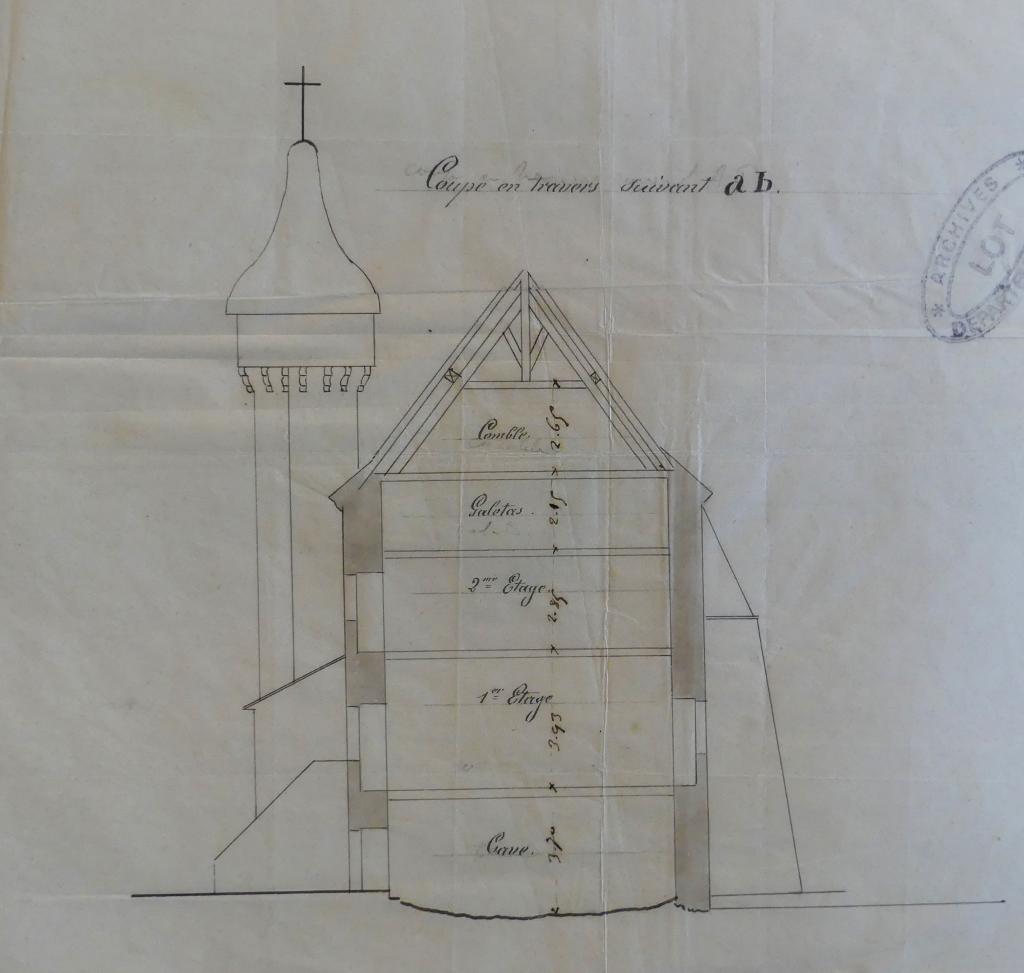 Coupe en travers suivant ab.
* ARCHIVES *
LOT
DÉPARTE
Comble.
2.65
Galetas.
2.15
2me Etage.
2.85
1er Etage
3.93
Cave.
3.70